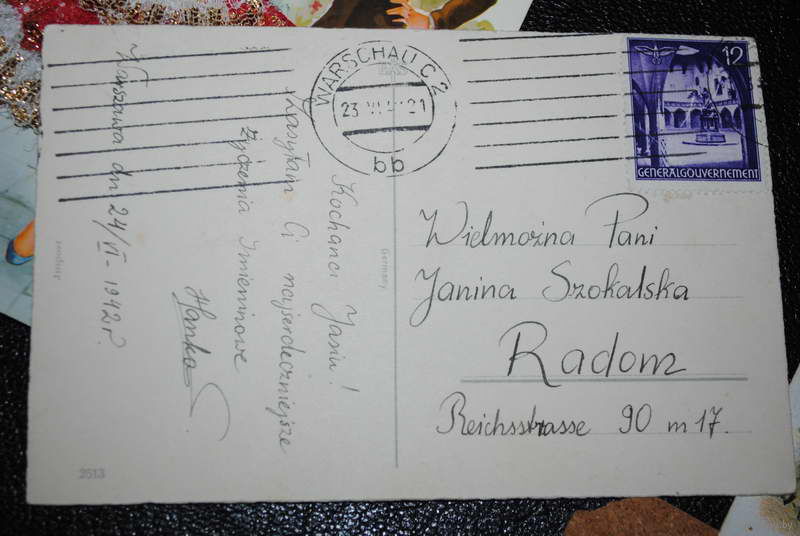 Warszawa dn 24/VI-1942r.
Kochana Jasiu!
Zasyłam Ci najserdeczniejsze
życzenia Imieninowe
Hanka
WARSCHAU C2
23 21
bb
12
GENERALGOUVERNEMENT
Wielmożna Pani
Janina Szokalska
Radom
Reichsstrasse 90 m 17.
Germany
2513